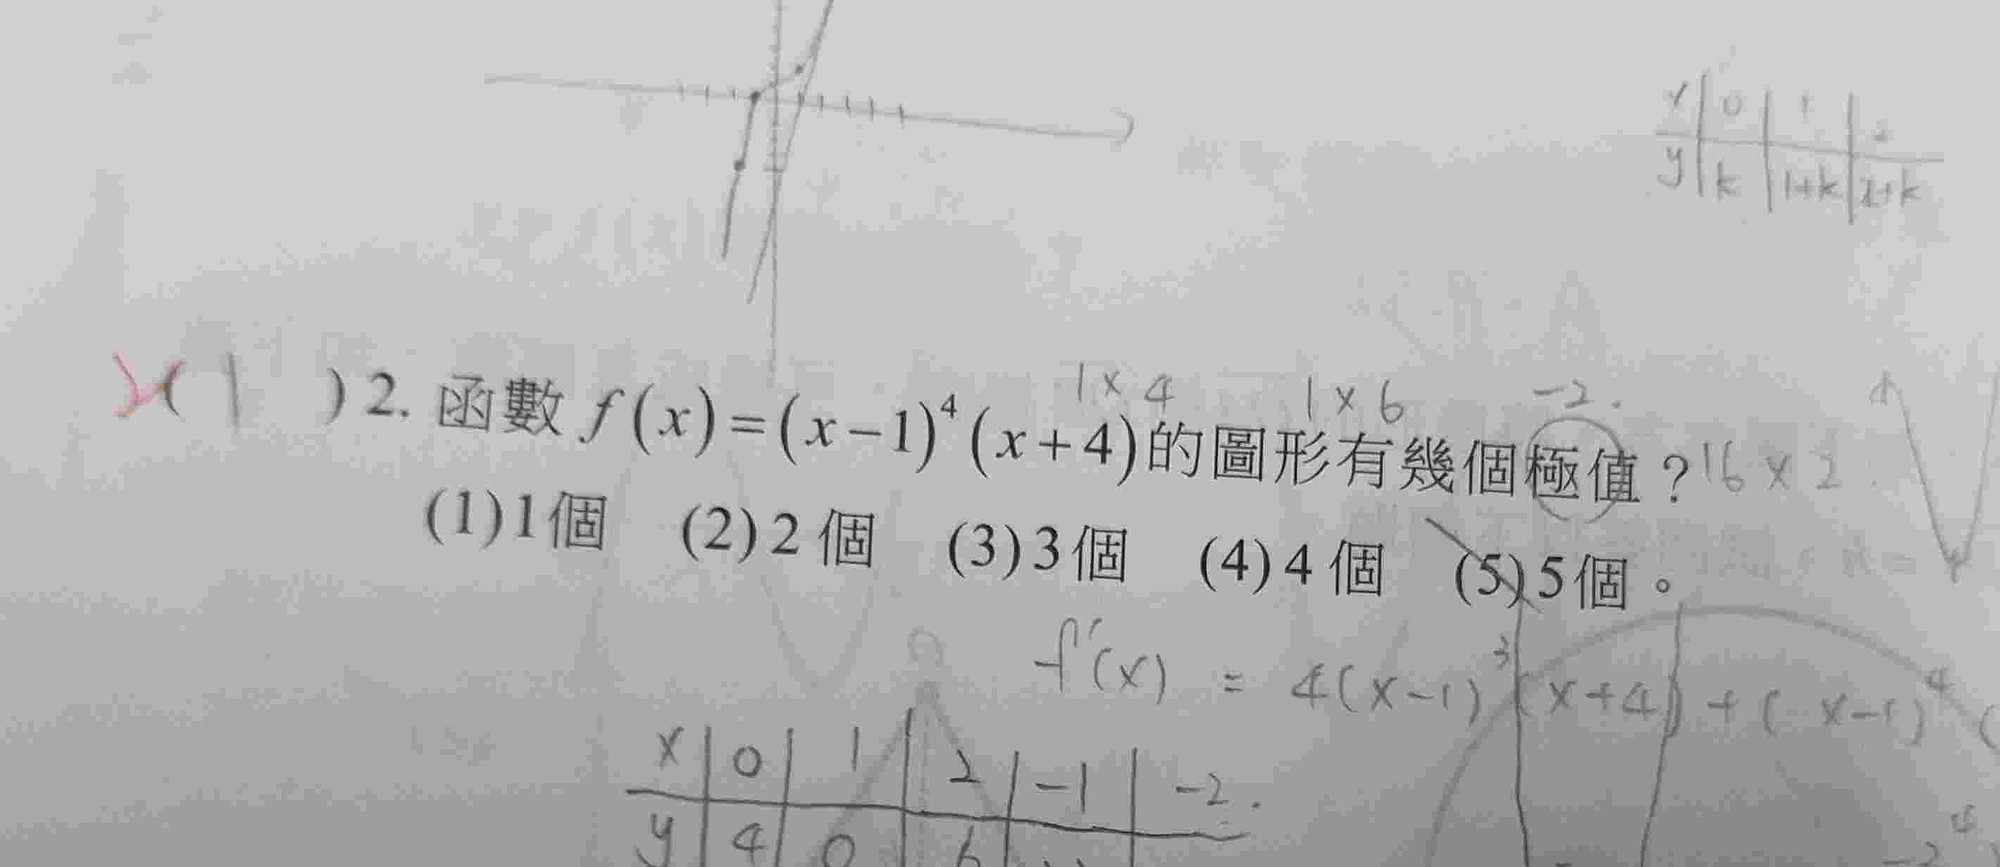 x 0 1 2
y k 1+k 2+k
1×4 1×6 -2.
2( 1 ) 2. 函數 f(x)=(x-1)⁴(x+4)的圖形有幾個極值？16×2
(1)1個 (2)2個 (3)3個 (4)4個 (5)5個。
f'(x) = 4(x-1)³(x+4)+(x-1)⁴(
x 0 1 2 -1 -2.
y 4 0 6